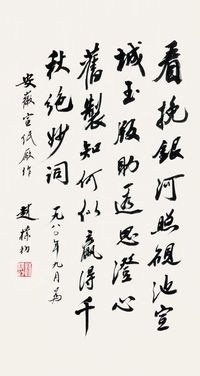 看挽銀河照硯池宣
城玉版助遐思澄心
舊製知何似贏得千
秋絕妙詞 一九八〇年九月為
安徽宣紙廠作 趙樸初